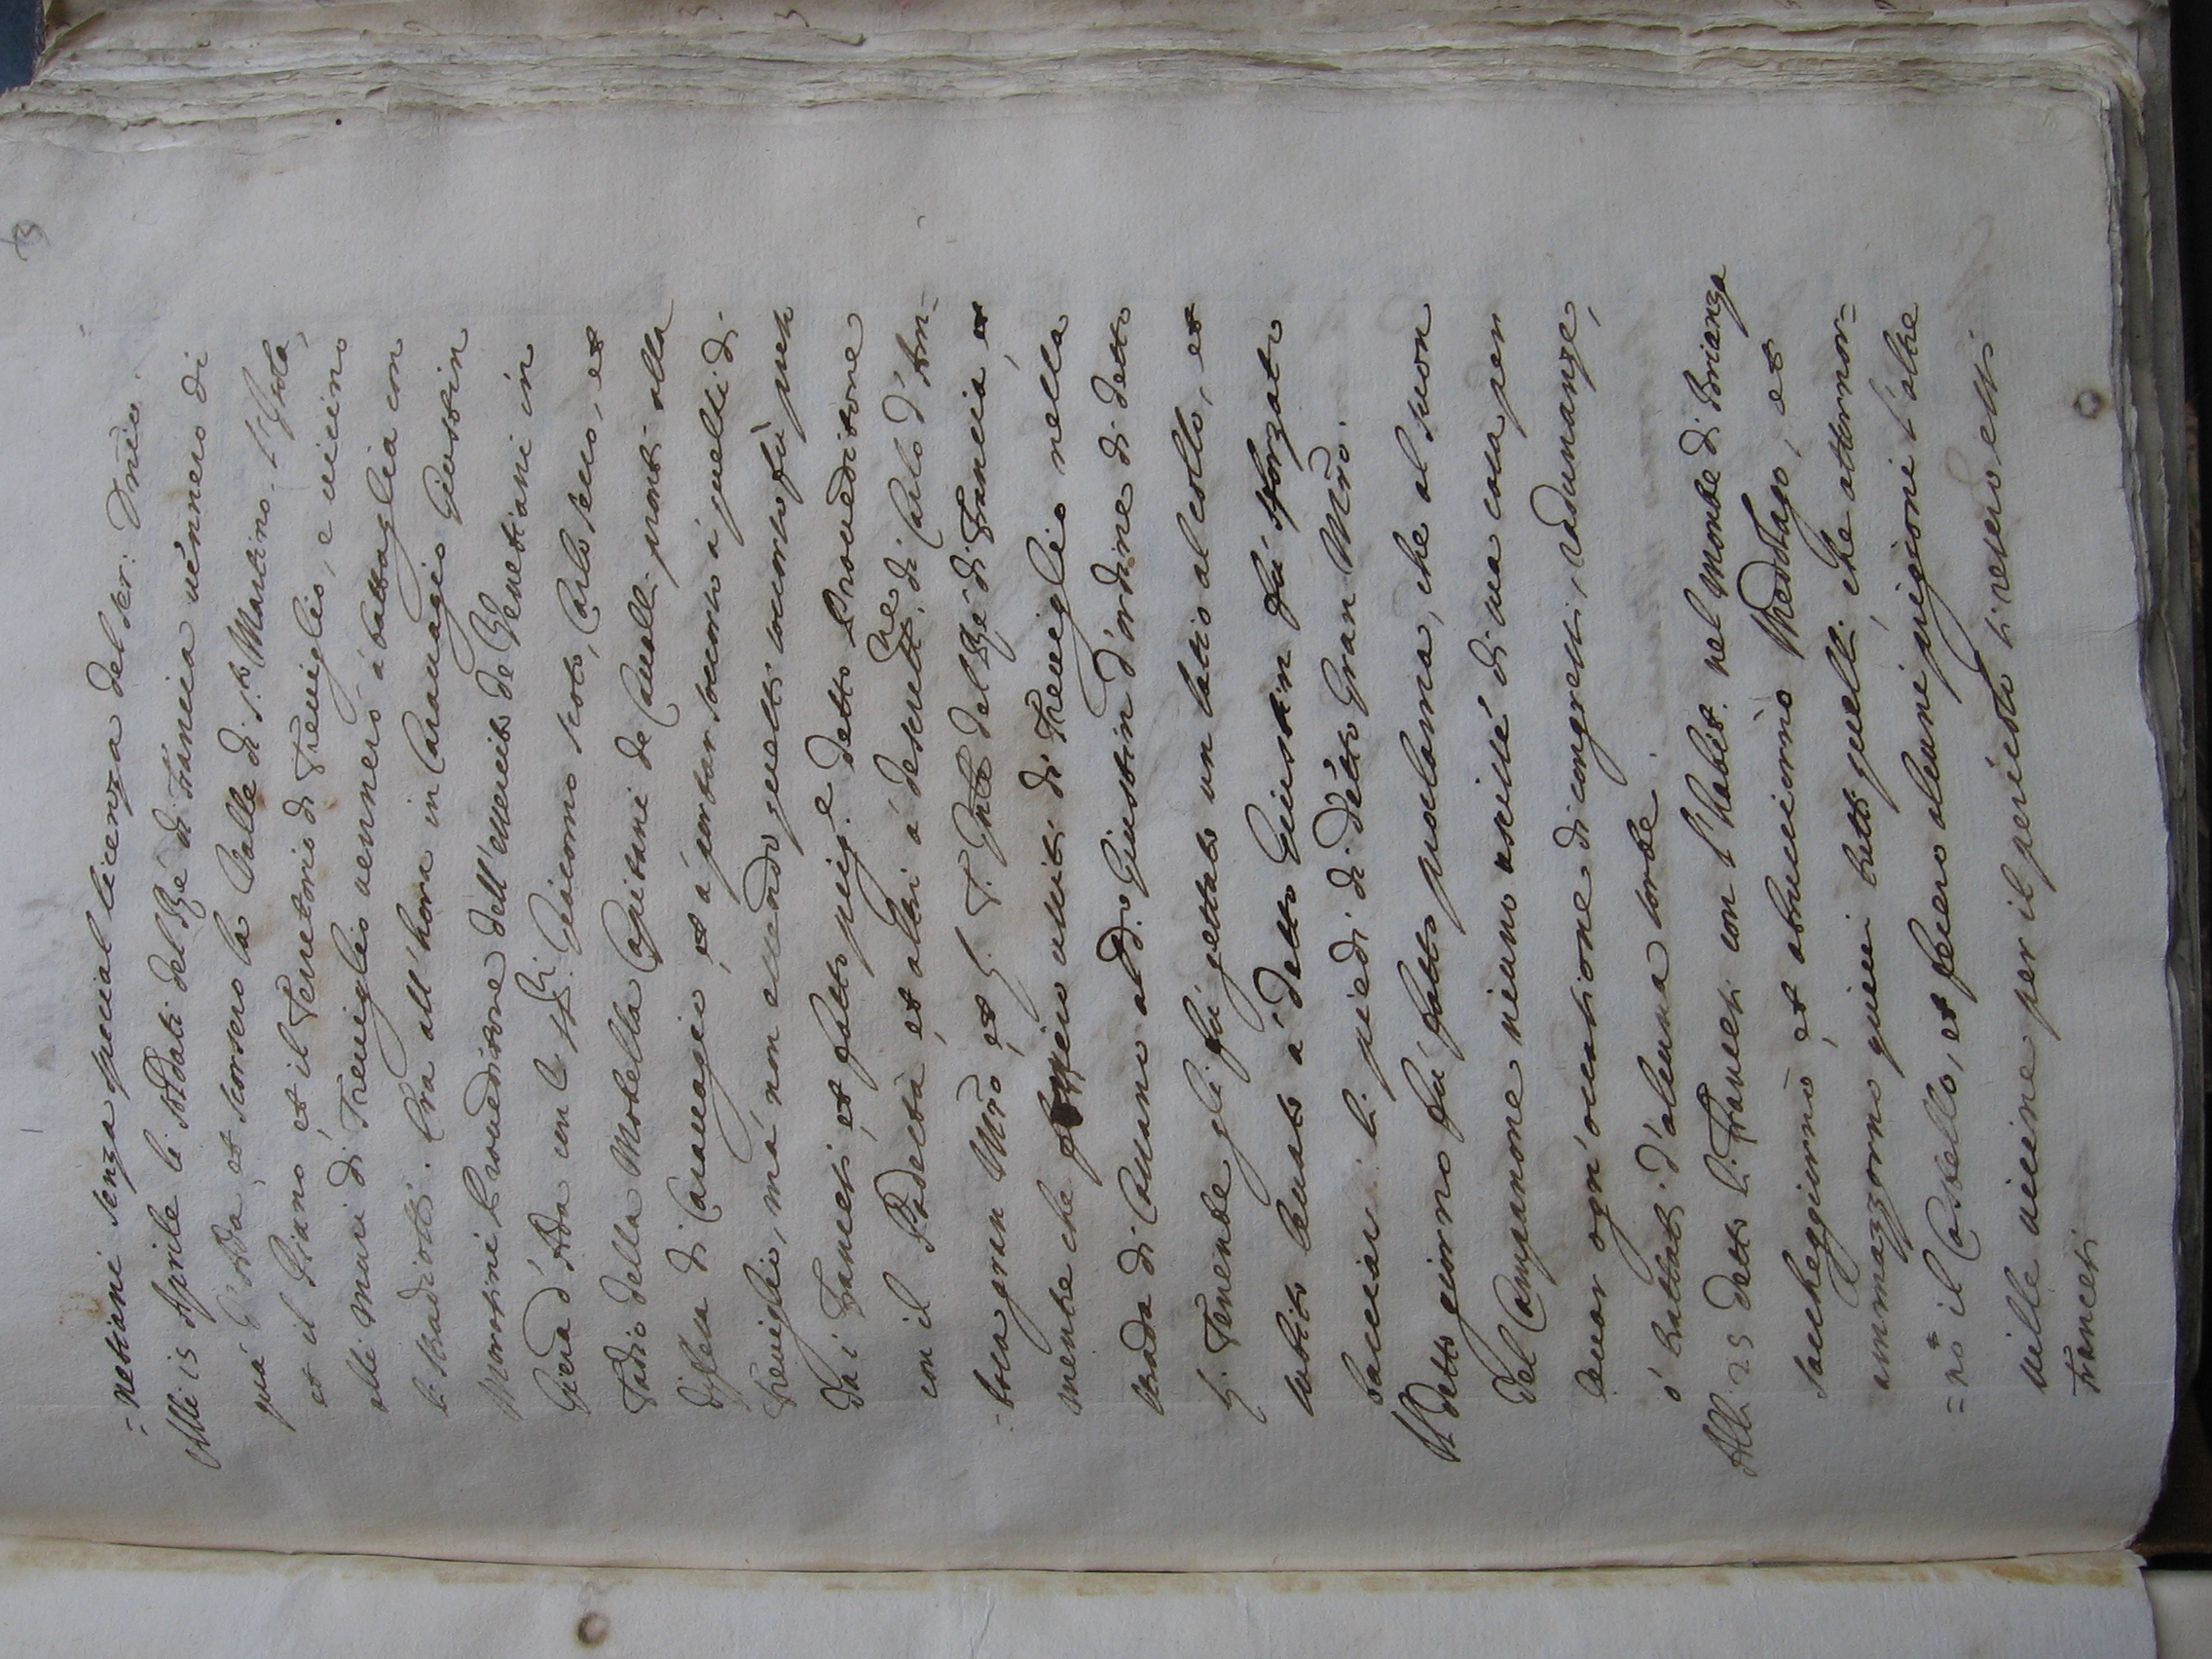 3
=netiani senza special licenza del ser: Dnio.
Alli 15 Aprile li soldati del Rè di Francia vénnero di
quà d'Adda, et scorsero la Valle di S.to Martino, l'Isola,
et il Piano, et il Territorio di Treviglio, e vicino
alli muri di Treviglio vennero à battaglia con
li stradiotti. Era all'hora in Caravagio Giustin
Morosini Proveditore dell'essercito de Venetiani in
Gierad'Adda con li ss.ri Giacomo seco, Carlo seco, et
Tadio della Motella Capitani de Cavalli pronti alla
diffesa di Caravagio, et à portar soccorso à quelli di
Treviglio, mà non essendo quelli soccorso fù
dai Francesi, et fatto prig.e detto Proveditore
con il Podestà, et altri à descritt.ne di Carlo d'Am=
=bosa gran Mro, et G. T. Gnte del Rè di Francia, et
mentre che usciti di Treviglio nella
strada di Cassano al d.o Giustin d'ordine di detto
G. Tenente gli fù gettato un laccio al collo, et
subito levato à detto Giustin fù sforzato
bacciari li piedi di détto Gran Mro.
Il detto giorno fù fatto proclama, che al suon
del Campanone niuno uscisse di sua casa per
levar ogn'occasione di congressi, radunanze,
ò trattati d'alcuna sorte.
Alli 25 detto li Francesi con l'habit. nel Monte di Brianza
saccheggiorno, et abrucciorno Medolago, et
ammazzorno quivi tutti quelli, che attornor=
=no il Castello, et fecero alcuni prigioni l'altre
ville vicine per il pericolo si resero essi
Francesi